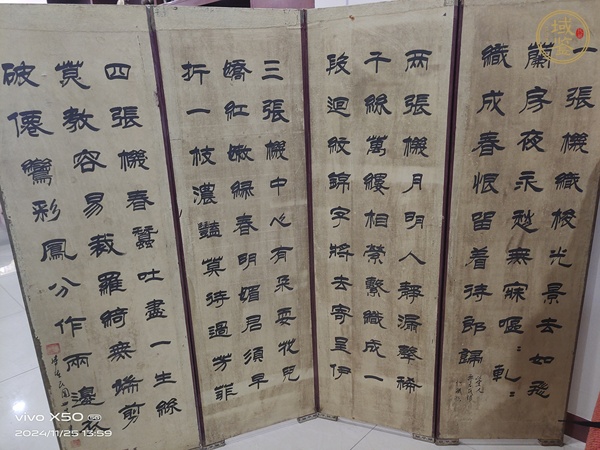 一張機織梭光景去如飛
蘭房夜永愁無寐嘔〻軋〻
織成春恨留着待郎歸
兩張機月明人靜漏聲稀
千絲萬縷相縈繫織成一
段迴紋錦字將去寄呈伊
三張機中心有朵耍花兒
嬌紅嫩綠春明媚君須早
折一枝濃豔莫待過芳菲
四張機春蠶吐盡一生絲
莫教容易裁羅綺無端剪
破僊鸞彩鳳分作兩邊衣
域鉴
vivo X50
2024/11/25 13:59